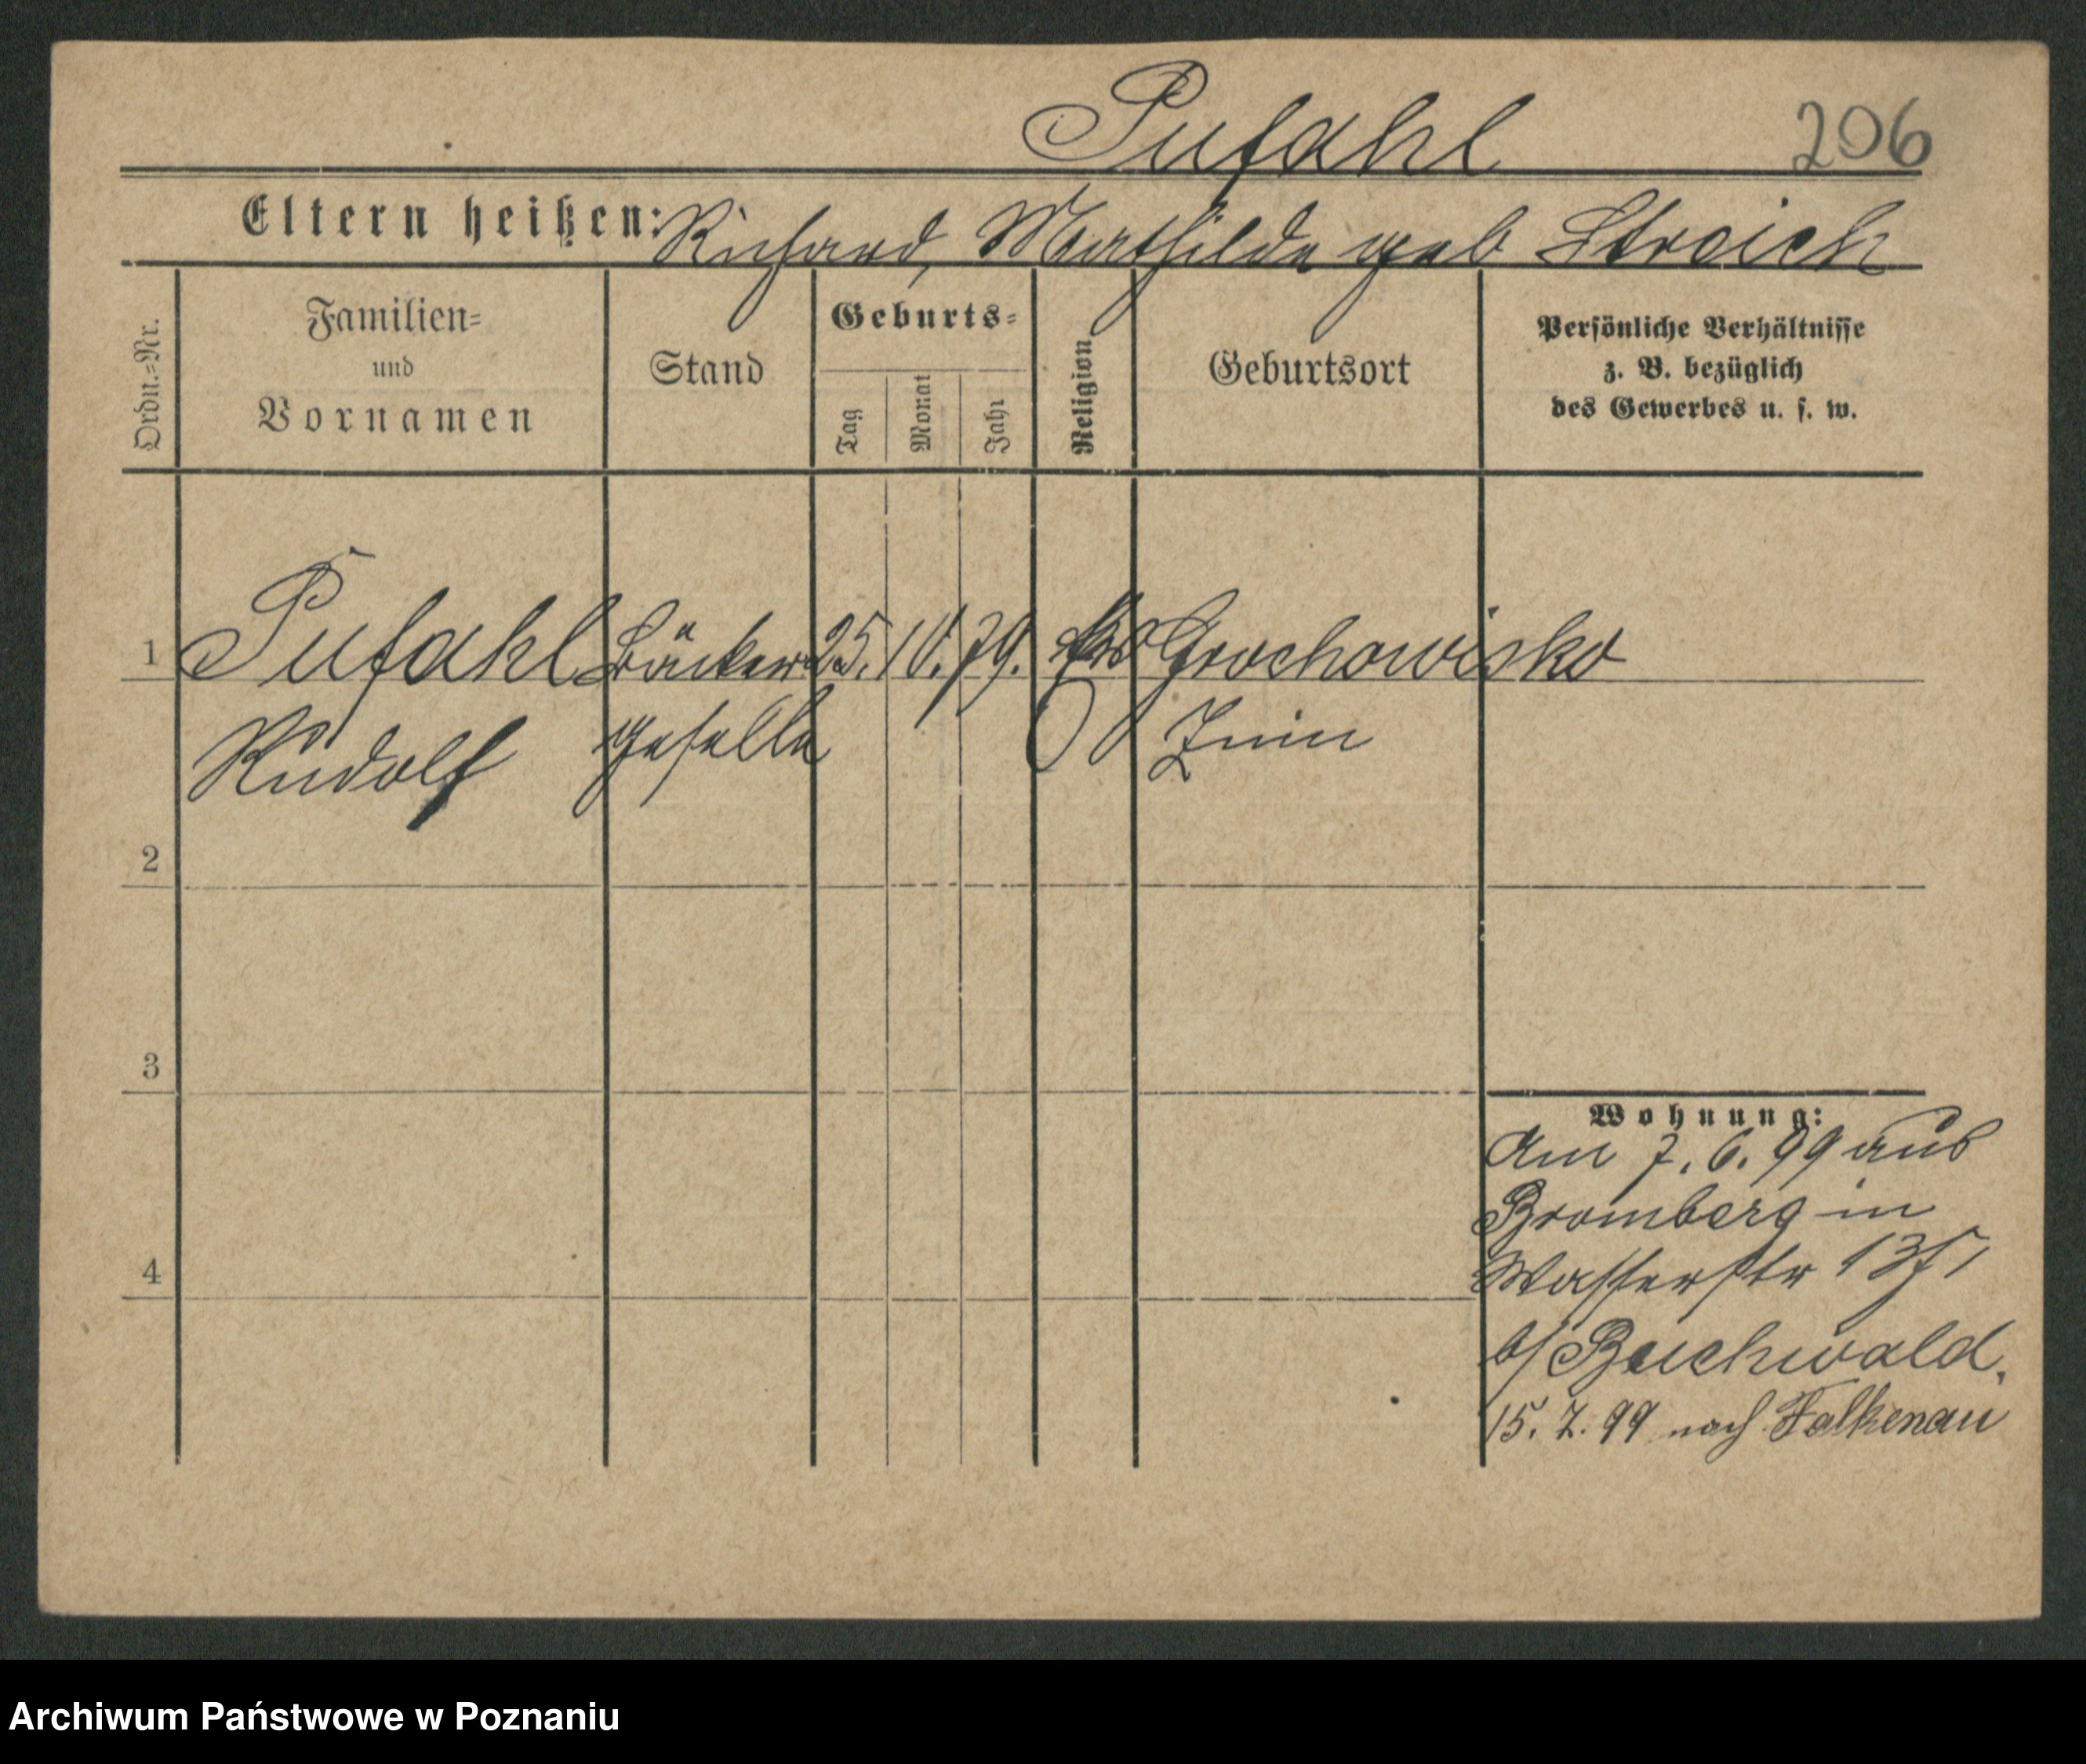 Pufahl 206
Eltern heißen: Richard, Mathilde geb Stroich
Ordn.=Nr.
Familien=
und
Vornamen
Stand
Geburts=
Tag
Monat
Jahr
Religion
Geburtsort
Persönliche Verhältnisse
z. B. bezüglich
des Gewerbes u. s. w.
1 Pufahl Bäcker 25. 10. 79. Grochowisko
Rudolf geselle Znin
2
3
4
Wohnung:
Am 7. 6. 99 aus
Bromberg in
Wasserstr
b/ Buchwald.
15. 7. 99 nach Falkenau
Archiwum Państwowe w Poznaniu